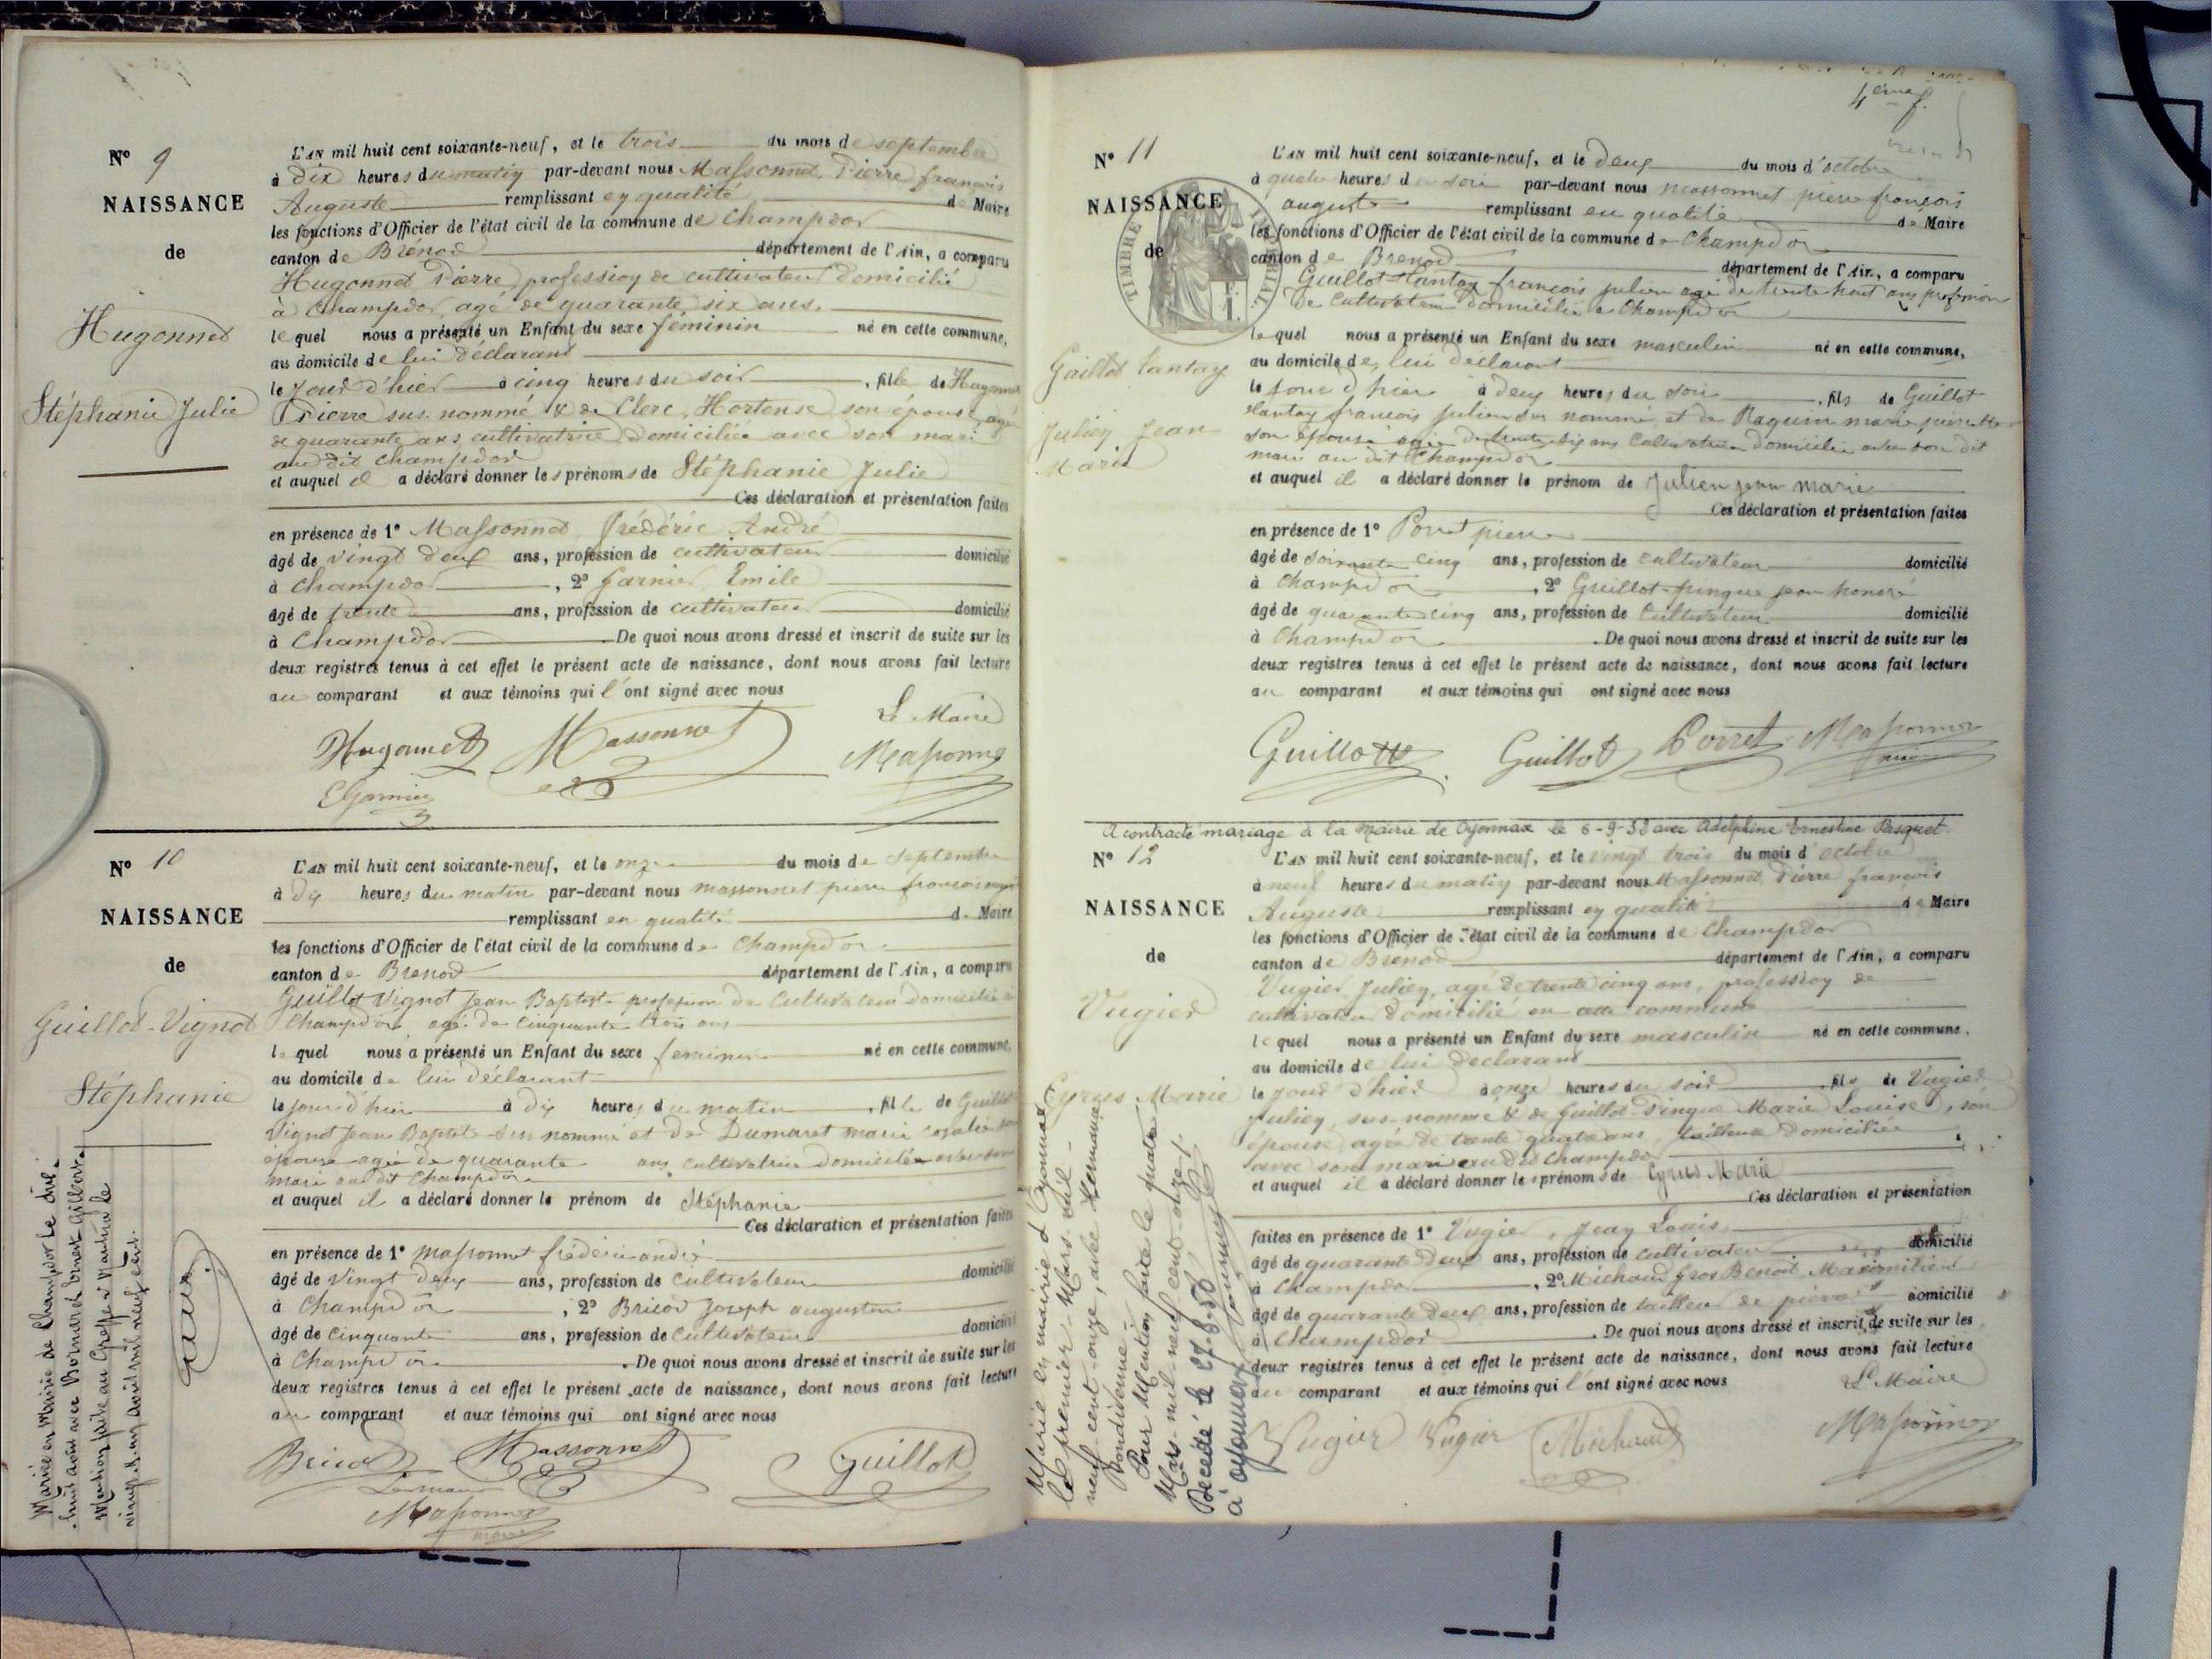 N° 9
NAISSANCE
de
Hugonnet
Stéphanie Julie
L'AN mil huit cent soixante-neuf, et le trois du mois de septembre
à Dix heures du matin par-devant nous Massonnet Pierre françois
Auguste remplissant en qualité de Maire
les fonctions d'Officier de l'état civil de la commune de Champdor
canton de Brénod département de l'Ain, a comparu
Hugonnet Pierre profession de cultivateur domicilié
à Champdor, agé de quarante six ans,
lequel nous a présenté un Enfant du sexe féminin né en cette commune,
au domicile de lui déclarant
le jour d'hier à cinq heures du soir, fille de Hugonnet
Pierre sus-nommé & de Clerc, Hortense son épouse agée
de quarante ans cultivatrice domiciliée avec son mari
au dit champdor
et auquel il a déclaré donner les prénoms de Stéphanie Julie
Ces déclaration et présentation faites
en présence de 1° Massonnet Frédéric André
âgé de vingt deux ans, profession de cultivateur domicilié
à Champdor, 2° Garnier Emile
âgé de trente ans, profession de cultivateur domicilié
à Champdor De quoi nous avons dressé et inscrit de suite sur les
deux registres tenus à cet effet le présent acte de naissance, dont nous avons fait lecture
au comparant et aux témoins qui l'ont signé avec nous
Le Maire
Hugonnet Massonnet Massonnet
E Garnier
N° 10
NAISSANCE
de
Guillot-Vignot
Stéphanie
L'AN mil huit cent soixante-neuf, et le onze du mois de septembre
à dix heures du matin par-devant nous massonnet pierre francois
remplissant en qualité de Maire
les fonctions d'Officier de l'état civil de la commune de Champdor
canton de Brenod département de l'Ain, a comparu
Guillot Vignot Jean Baptiste profession de Cultivateur domicilié à
Champdor, agé de cinquante trois ans
lequel nous a présenté un Enfant du sexe feminin né en cette commune,
au domicile de lui déclarant
le jour d'hier à dix heures du matin, fille de Guillot
Vignot Jean Baptiste sus nommé et de Dumaret marie rosalie son
épouse agée de quarante ans cultivatrice domiciliée avec son
mari au dit Champdor
et auquel il a déclaré donner le prénom de Stéphanie
Ces déclaration et présentation faites
en présence de 1° massonnet frédéric andré
âgé de vingt deux ans, profession de cultivateur domicilié
à Champdor, 2° Bricod Joseph augustin
âgé de cinquante ans, profession de Cultivateur domicilié
à Champdor. De quoi nous avons dressé et inscrit de suite sur les
deux registres tenus à cet effet le présent acte de naissance, dont nous avons fait lecture
au comparant et aux témoins qui ont signé avec nous
Bricod Massonnet Guillot
Le maire
Massonnet
Mariée en Mairie de Champdor le dix-
huit août avec
Mention faite au Greffe à Nantua le
vingt-un août mil neuf cent.
4ème f.
N° 11
NAISSANCE
de
TIMBRE IMPÉRIAL
Guillot lantay
Julien Jean
Marie
L'AN mil huit cent soixante-neuf, et le deux du mois d'octobre
à quatre heures du soir par-devant nous massonnet pierre francois
auguste remplissant en qualité de Maire
les fonctions d'Officier de l'état civil de la commune de Champdor
canton de Brenod département de l'Ain, a comparu
Guillot Lantay françois julien agé de trente huit ans profession
de cultivateur domicilié à Champdor
lequel nous a présenté un Enfant du sexe masculin né en cette commune,
au domicile de lui declarant
le jour d'hier à deux heures du soir, fils de Guillot
Lantay francois julien sus nommé et de Raquin marie pierrette
son épouse agée de trente six ans cultivatrice domiciliée avec son dit
mari au dit Champdor
et auquel il a déclaré donner le prénom de Julien jean marie
Ces déclaration et présentation faites
en présence de 1° Porret pierre
âgé de soixante cinq ans, profession de cultivateur domicilié
à Champdor, 2° Guillot-pingue jean honoré
âgé de quarante cinq ans, profession de Cultivateur domicilié
à Champdor. De quoi nous avons dressé et inscrit de suite sur les
deux registres tenus à cet effet le présent acte de naissance, dont nous avons fait lecture
au comparant et aux témoins qui ont signé avec nous
Guillot Guillot Porret Massonnet
A contracté mariage à la Mairie de Oyonnax le 6-9-32 avec Adelphine Ernestine Pasquet
N° 12
NAISSANCE
de
Vugier
Cyrus Marie
L'AN mil huit cent soixante-neuf, et le vingt trois du mois d'octobre
à neuf heures du matin par-devant nous Massonnet Pierre françois
Auguste remplissant en qualité de Maire
les fonctions d'Officier de l'état civil de la commune de Champdor
canton de Brénod département de l'Ain, a comparu
Vugier Julien, agé de trente cinq ans, profession de
cultivateur domicilié en cette commune
lequel nous a présenté un Enfant du sexe masculin né en cette commune,
au domicile de lui déclarant
le jour d'hier à onze heures du soir, fils de Vugier
Julien, sus-nommé & de Guillot Pingue Marie Louise, son
épouse, agée de trente quatre ans, tailleuse domiciliée
avec son mari au dit Champdor
et auquel il a déclaré donner les prénoms de Cyrus Marie
Ces déclaration et présentation
faites en présence de 1° Vugier, Jean Louis
âgé de quarante Deux ans, profession de cultivateur domicilié
à Champdor, 2° Michaud gros Benoit Maximilien
âgé de quarante Deux ans, profession de tailleur de pierres domicilié
à Champdor. De quoi nous avons dressé et inscrit de suite sur les
deux registres tenus à cet effet le présent acte de naissance, dont nous avons fait lecture
au comparant et aux témoins qui l'ont signé avec nous
Le Maire
Vugier Vugier Michaud Massonnet
Marié en mairie d'Oyonnax
le premier Mars mil-
neuf-cent-onze, avec Hermance
Pour Mention faite le quatre
Mars mil-neuf-cent-onze.
Décédé le 27-8-50
à Oyonnax